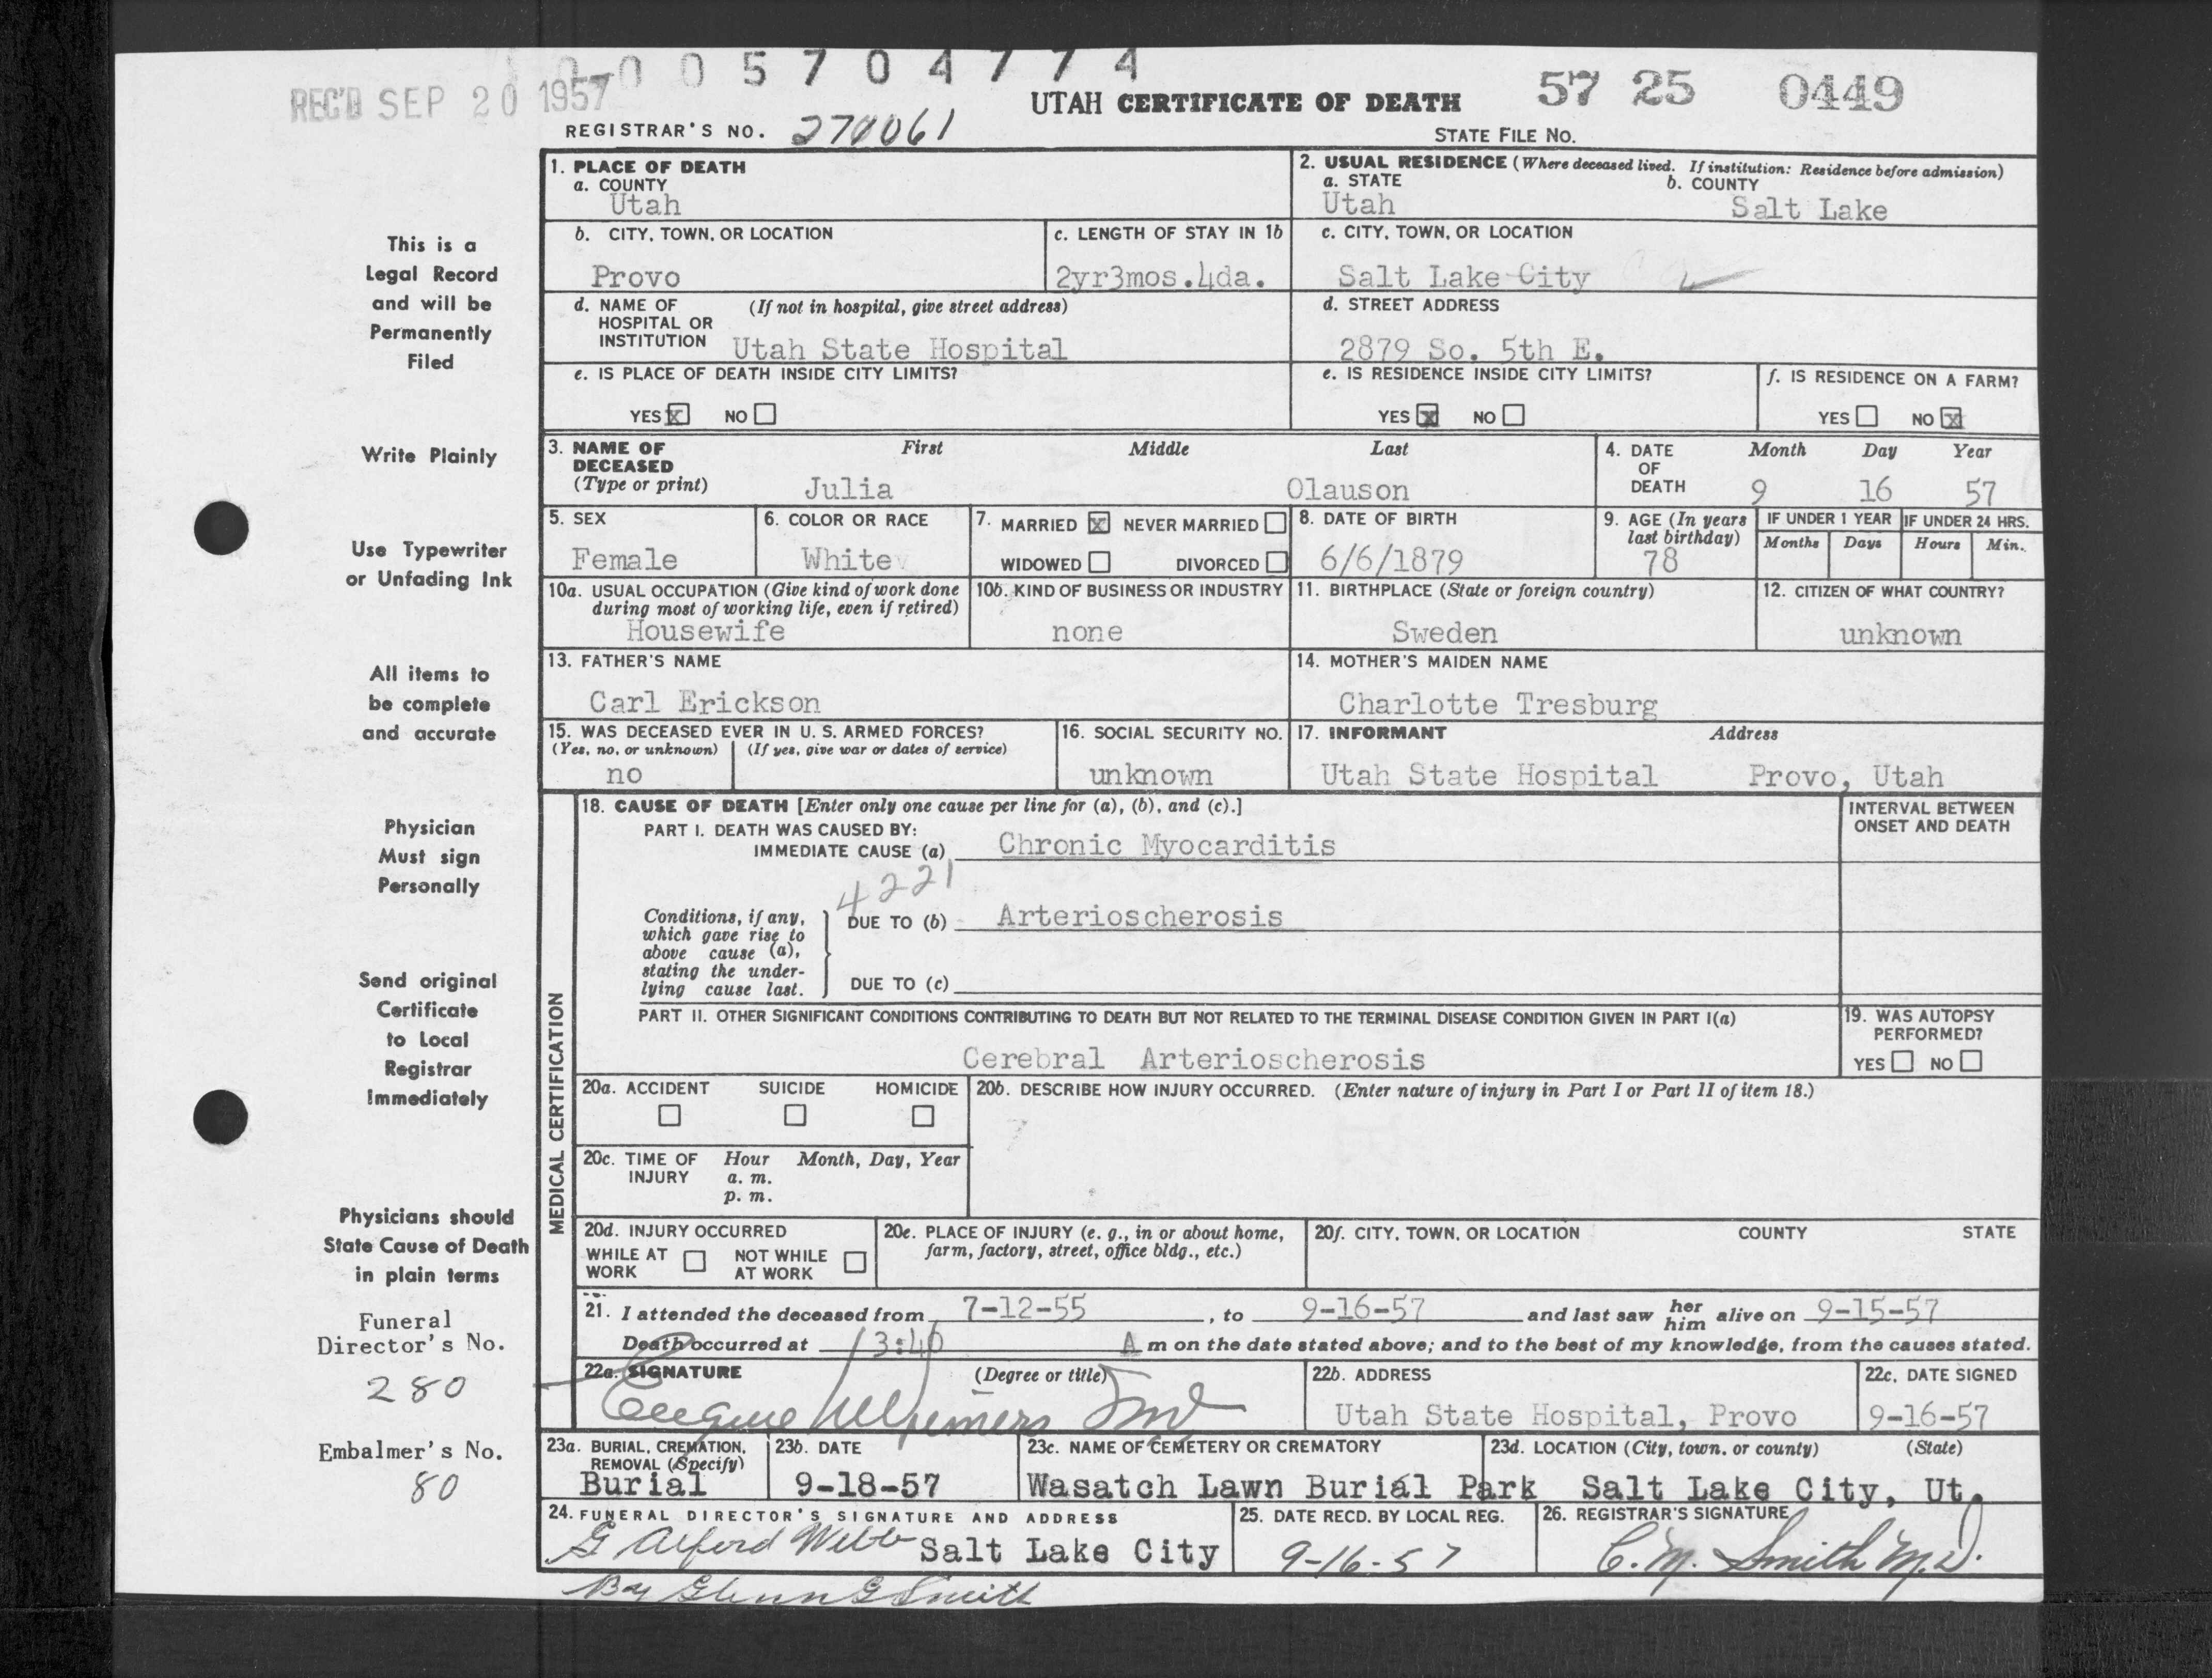 0 0 0 5 7 0 4 7 7 4
REC'D SEP 20 1957
UTAH CERTIFICATE OF DEATH 57 25 0449
REGISTRAR'S NO. 270061 STATE FILE NO.
1. PLACE OF DEATH
a. COUNTY
Utah
2. USUAL RESIDENCE (Where deceased lived. If institution: Residence before admission)
a. STATE b. COUNTY
Utah Salt Lake
b. CITY, TOWN, OR LOCATION
Provo
c. LENGTH OF STAY IN 1b
2yr3mos.4da.
c. CITY, TOWN, OR LOCATION
Salt Lake City
d. NAME OF (If not in hospital, give street address)
HOSPITAL OR
INSTITUTION Utah State Hospital
d. STREET ADDRESS
2879 So. 5th E.
e. IS PLACE OF DEATH INSIDE CITY LIMITS?
YES X NO
e. IS RESIDENCE INSIDE CITY LIMITS?
YES X NO
f. IS RESIDENCE ON A FARM?
YES NO X
3. NAME OF First Middle Last
DECEASED
(Type or print) Julia Olauson
4. DATE Month Day Year
OF
DEATH 9 16 57
5. SEX
Female
6. COLOR OR RACE
White
7. MARRIED X NEVER MARRIED
WIDOWED DIVORCED
8. DATE OF BIRTH
6/6/1879
9. AGE (In years
last birthday)
78
IF UNDER 1 YEAR
Months Days
IF UNDER 24 HRS.
Hours Min.
10a. USUAL OCCUPATION (Give kind of work done
during most of working life, even if retired)
Housewife
10b. KIND OF BUSINESS OR INDUSTRY
none
11. BIRTHPLACE (State or foreign country)
Sweden
12. CITIZEN OF WHAT COUNTRY?
unknown
13. FATHER'S NAME
Carl Erickson
14. MOTHER'S MAIDEN NAME
Charlotte Tresburg
15. WAS DECEASED EVER IN U. S. ARMED FORCES?
(Yes, no, or unknown) (If yes, give war or dates of service)
no
16. SOCIAL SECURITY NO.
unknown
17. INFORMANT Address
Utah State Hospital Provo, Utah
MEDICAL CERTIFICATION
18. CAUSE OF DEATH [Enter only one cause per line for (a), (b), and (c).]
PART I. DEATH WAS CAUSED BY:
IMMEDIATE CAUSE (a) Chronic Myocarditis
INTERVAL BETWEEN
ONSET AND DEATH
4221
Conditions, if any,
which gave rise to
above cause (a),
stating the under-
lying cause last.
DUE TO (b) Arterioscherosis
DUE TO (c)
PART II. OTHER SIGNIFICANT CONDITIONS CONTRIBUTING TO DEATH BUT NOT RELATED TO THE TERMINAL DISEASE CONDITION GIVEN IN PART I(a)
Cerebral Arterioscherosis
19. WAS AUTOPSY
PERFORMED?
YES NO
20a. ACCIDENT SUICIDE HOMICIDE
20b. DESCRIBE HOW INJURY OCCURRED. (Enter nature of injury in Part I or Part II of item 18.)
20c. TIME OF Hour Month, Day, Year
INJURY a. m.
p. m.
20d. INJURY OCCURRED
WHILE AT NOT WHILE
WORK AT WORK
20e. PLACE OF INJURY (e. g., in or about home,
farm, factory, street, office bldg., etc.)
20f. CITY, TOWN, OR LOCATION COUNTY STATE
21. I attended the deceased from 7-12-55, to 9-16-57 and last saw her him alive on 9-15-57
Death occurred at 3:40 A m on the date stated above; and to the best of my knowledge, from the causes stated.
22a. SIGNATURE (Degree or title)
Eugene MD
22b. ADDRESS
Utah State Hospital, Provo
22c. DATE SIGNED
9-16-57
23a. BURIAL, CREMATION,
REMOVAL (Specify)
Burial
23b. DATE
9-18-57
23c. NAME OF CEMETERY OR CREMATORY
Wasatch Lawn Burial Park
23d. LOCATION (City, town, or county) (State)
Salt Lake City, Ut.
24. FUNERAL DIRECTOR'S SIGNATURE AND ADDRESS
G Alford Webb Salt Lake City
By Glenn G Smith
25. DATE RECD. BY LOCAL REG.
9-16-57
26. REGISTRAR'S SIGNATURE
C. M. Smith M.D.
This is a
Legal Record
and will be
Permanently
Filed
Write Plainly
Use Typewriter
or Unfading Ink
All items to
be complete
and accurate
Physician
Must sign
Personally
Send original
Certificate
to Local
Registrar
Immediately
Physicians should
State Cause of Death
in plain terms
Funeral
Director's No.
280
Embalmer's No.
80